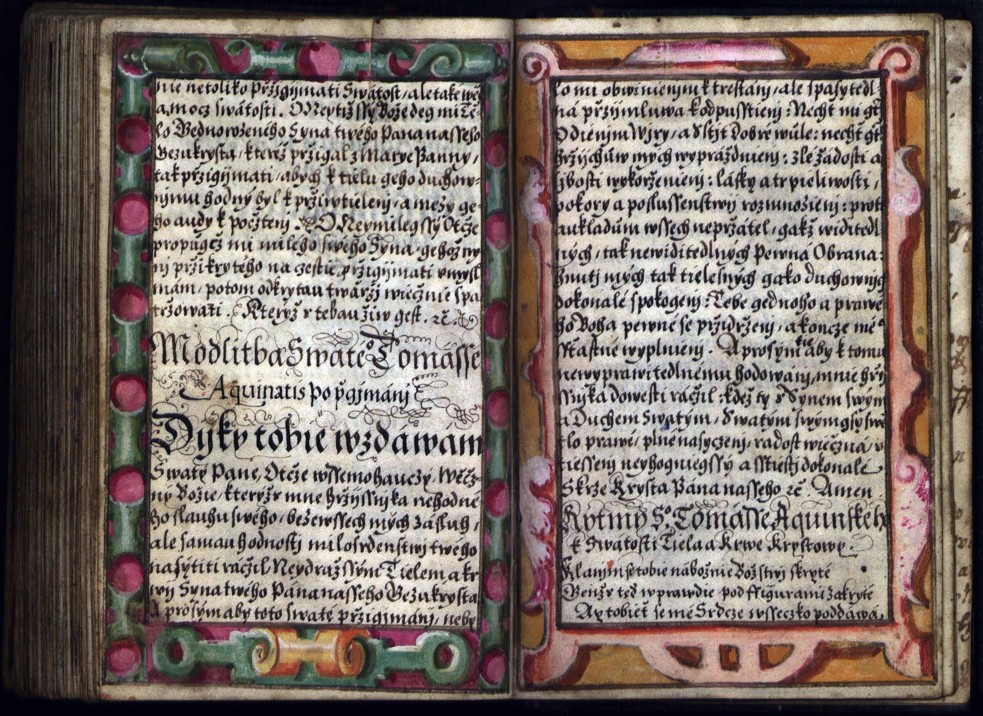 nie netoliko przigijmati Swátost / ale také wěc
a mocz swátosti. O Neytižssy Bože deg mi Tě
lo Gednorozeného Syna twého Pana nasseho
Gezukrysta / kteréž przigal z Marye Panny /
tak przigijmati / abych k tielu geho duchow-
nijmu hodný byl k prziwtieleni / a mezy ge-
ho audy k pocžteni. O Neymilegssý Otče
propugcž mi milého swého Syna / gehož ny
ny przikrytého na cžestie przigijmati umysl
mám / potom odkrytau twárzý wiecžnie spa
trżowati. Kterýž s tebau živ gest. zč.
Modlitba Swateº Tomásse
Aquinatis po przgimáni
Dijky tobie wzdáwám
Swatý Pane, Otče wssemohauczý, Wěcž-
ný Bože, kterýž mne hrzijssnijka nehodné
ho sluhu swého / beze wssech mých zásluh /
ale samau hodnosti milosrdenstwij twého
nasýtiti rácžil Neydražssým Tielem a kr
wij Syna twého Pána nasseho Gezukrysta
A prosým aby toto swaté przigijmáni / neby
lo mi obwinienijm k trestáni / ale spasytedl-
ná przijmluwa k odpusstieni: Necht mi ge
Odienim Wijry / a Sstijt Dobré wůle: necht ge
hrzijchůw mých wyprázdnieni: zlé žádosti a
zbosti wykorzenieni: lásky a trpieliwosti /
pokory a poslussenstwij rozmnoženi: proti
aukladům wssech neprzátel / gakž widitedl
ných / tak newiditedlných Pewná Obrana:
hnutij mých tak tielesných gako duchownijc
dokonalé spokogeni: Tebe gednoho a pravé
ho Boha pewné se przidrženi / a koncze méº
sstastné wyplnieni. A prosým tě aby k tomu
newyprawitedlnému hodowáni, mne hrzij
ssnijka dowesti rácžil: kdež ty s Synem swým
a Duchem Swatým, Swatým swým gsy swě
tlo prawé / plné nasyceni, radost wiecžná / u
tiesseni neyhognegssý a sstiestij dokonalé
Skrze Krysta Pána nasseho zč. Amen.
Rytmy S. Tomásse Aquinskeh
k Swatosti Tiela a Krwe Krystowy.
Klanijm se tobie nábožnie Božstwij skryté
Genž ses teď w prawdie pod ffigurami zakryté
Ay tobieť se mé Srdcze wsseczko poddáwá,